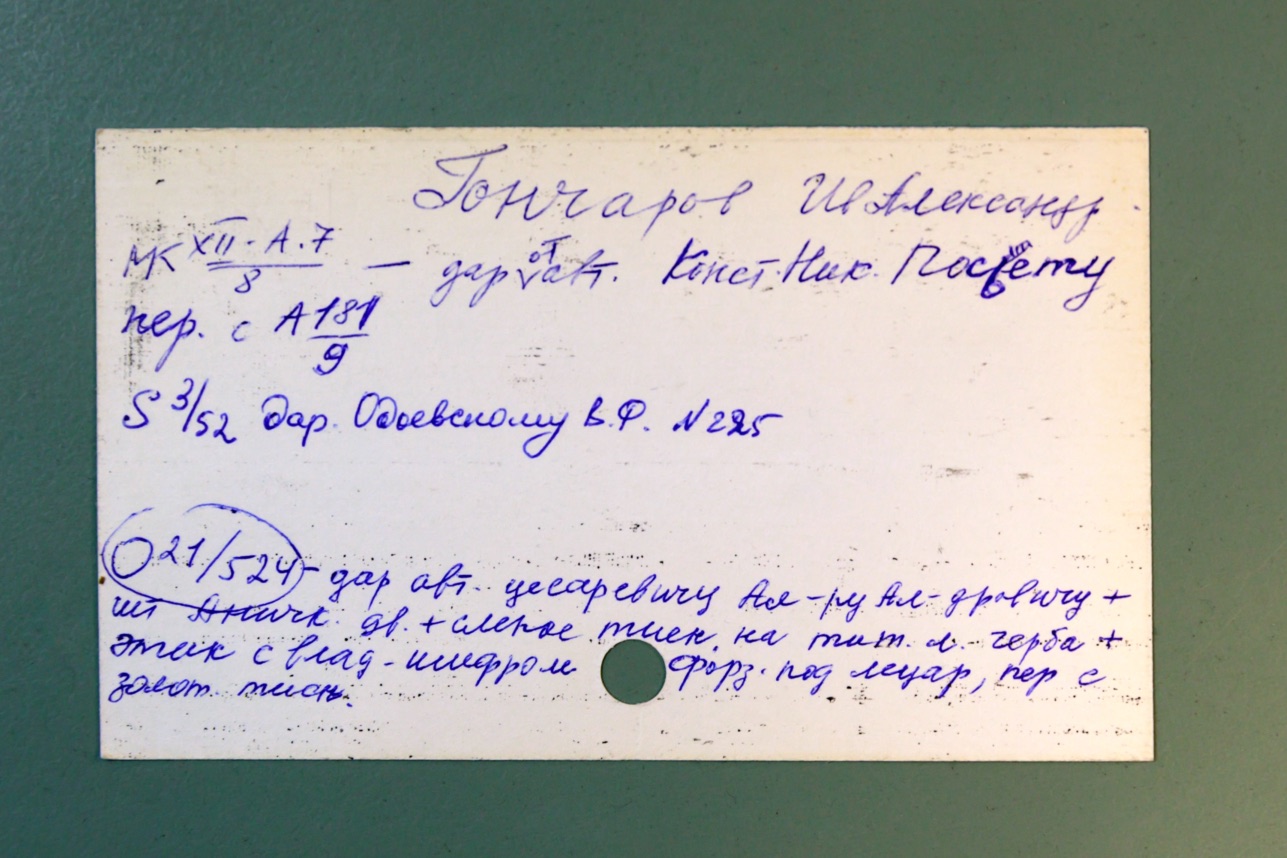 Гончаров Ив Александр.
МК XII-А.7/8 — дар от авт. Конст. Ник. Посьету
пер. с А 181/9
S 3/52 дар. Одоевскому В.Ф. № 225
О 21/524 - дар авт. цесаревичу Ал-ру Ал-дровичу +
шт Аничк. дв. + слепое тисн. на тит. л. герба +
этик с влад-шифром форз. под муар, пер с
золот. тисн.